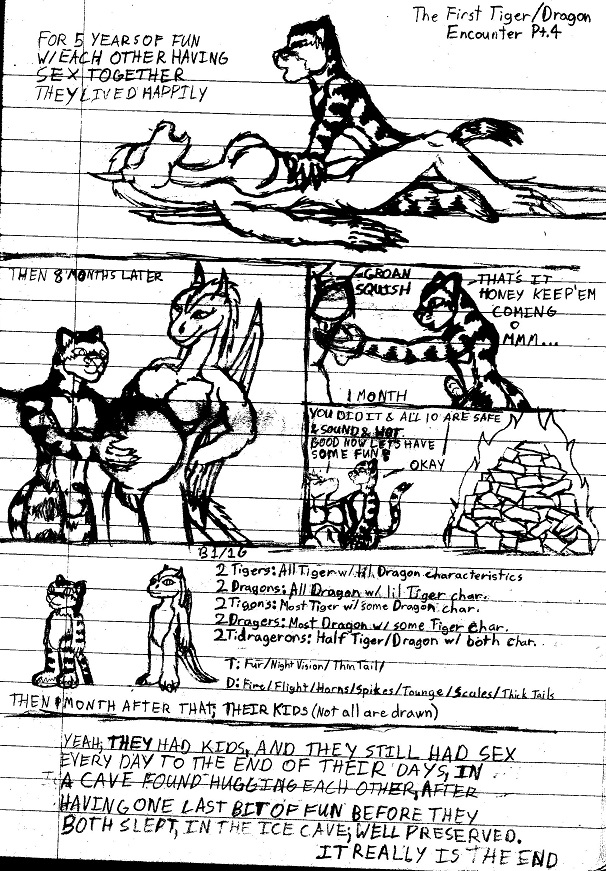 The First Tiger/Dragon
Encounter Pt.4
FOR 5 YEARS OF FUN
W/EACH OTHER HAVING
SEX TOGETHER
THEY LIVED HAPPILY
THEN 8 MONTHS LATER
GROAN
SQUISH
THAT'S IT
HONEY KEEP'EM
COMING
MMM...
1 MONTH
YOU DID IT & ALL 10 ARE SAFE
& SOUND & HOT
GOOD NOW LETS HAVE
SOME FUN
OKAY
B1/1G
2 Tigers: All Tiger w/ lil Dragon characteristics
2 Dragons: All Dragon w/ lil Tiger char.
2 Tigons: Most Tiger w/ some Dragon char.
2 Dragers: Most Dragon w/ some Tiger char.
2 Tidragerons: Half Tiger/Dragon w/ both char.
T: Fur/Night Vision/Thin Tail/
D: Fire/Flight/Horns/Spikes/Tounge/Scales/Thick Tails
THEN 1 MONTH AFTER THAT, THEIR KIDS (Not all are drawn)
YEAH, THEY HAD KIDS, AND THEY STILL HAD SEX
EVERY DAY TO THE END OF THEIR DAYS, IN
A CAVE FOUND HUGGING EACH OTHER, AFTER
HAVING ONE LAST BIT OF FUN BEFORE THEY
BOTH SLEPT, IN THE ICE CAVE, WELL PRESERVED.
IT REALLY IS THE END